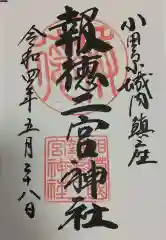 小田原城内鎮座
報徳二宮神社
令和四年五月二十八日